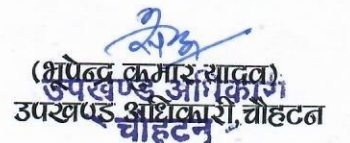 (भूपेन्द्र कुमार यादव)
उपखण्ड अधिकारी
उपखण्ड अधिकारी, चौहटन
चौहटन